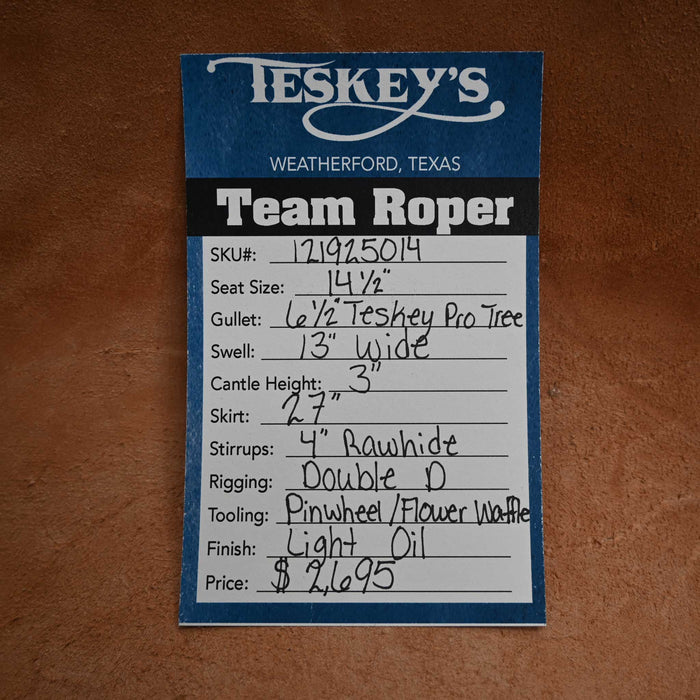 TESKEY'S
WEATHERFORD, TEXAS
Team Roper
SKU#: 121925014
Seat Size: 14 1/2"
Gullet: 6 1/2" Teskey Pro Tree
Swell: 13" Wide
Cantle Height: 3"
Skirt: 27"
Stirrups: 4" Rawhide
Rigging: Double D
Tooling: Pinwheel/Flower Waffle
Finish: Light Oil
Price: $2,695